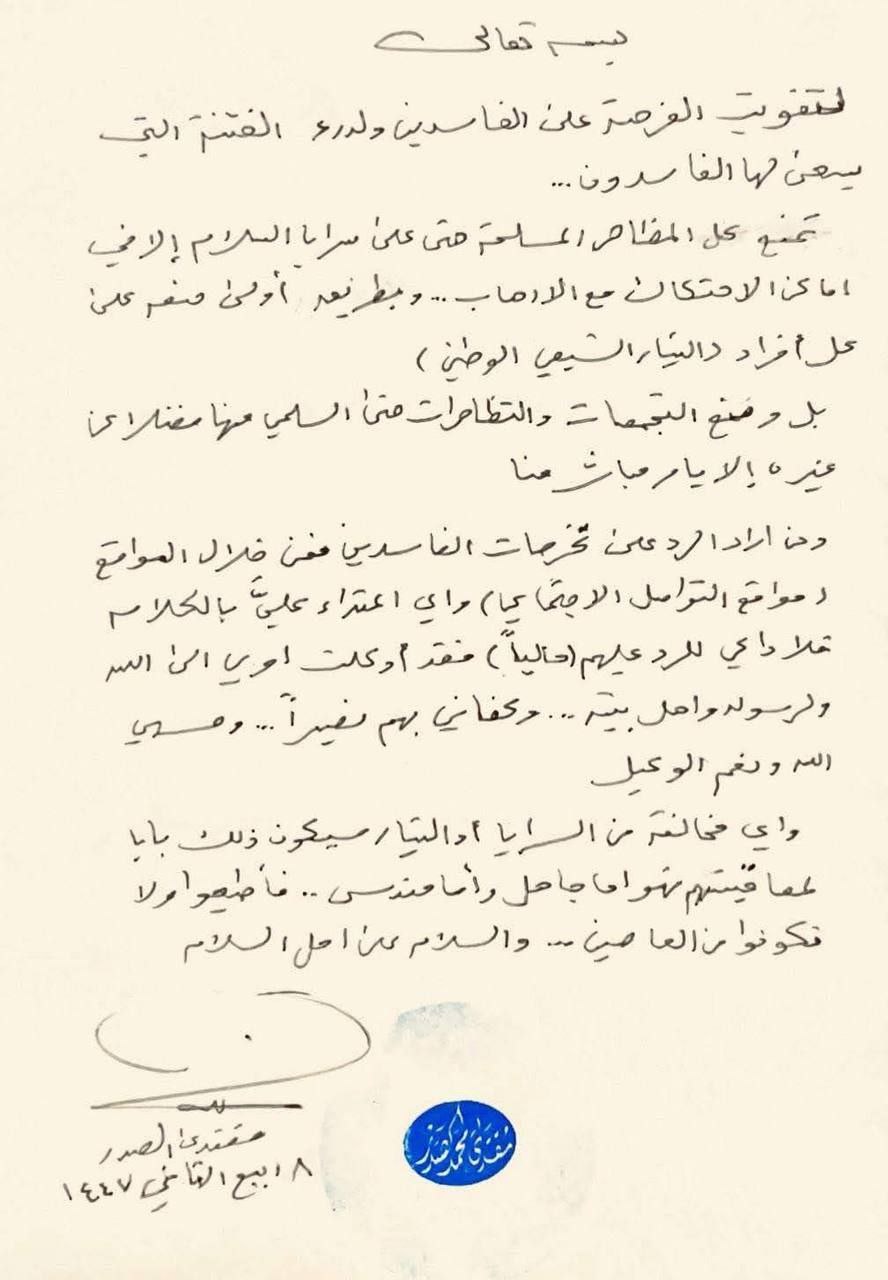 بسمه تعالى
لتفويت الفرصة على الفاسدين ولدرء الفتنة التي
يسعى لها الفاسدون...
تمنع كل المظاهر المسلحة حتى على سرايا السلام إلا في
اماكن الاحتكاك مع الارهاب... وبطريقه أولى منعه على
كل أفراد (التيار الشيعي الوطني)
بل ومنع التجمعات والتظاهرات حتى السلمي منها فضلا عن
غيره إلا بامر مباشر منا
ومن اراد الرد على تخرصات الفاسدين فمن خلال المواقع
(مواقع التواصل الاجتماعي) واي اعتداء عليَّ بالكلام
فلا داعي للرد عليهم (حالياً) فقد أوكلت امري الى الله
ولرسوله واهل بيته... وكفاني بهم نصيراً... وحسبي
الله ونعم الوكيل
واي مخالفة من السرايا أو التيار سيكون ذلك بابا
لمعاقبتهم فهو اما جاهل وأما مندس.. فأطيعوا ولا
تكونوا من العاصين... والسلام على اهل السلام
مقتدى الصدر
٨ ربيع الثاني ١٤٤٧
مقتدى محمد الصدر